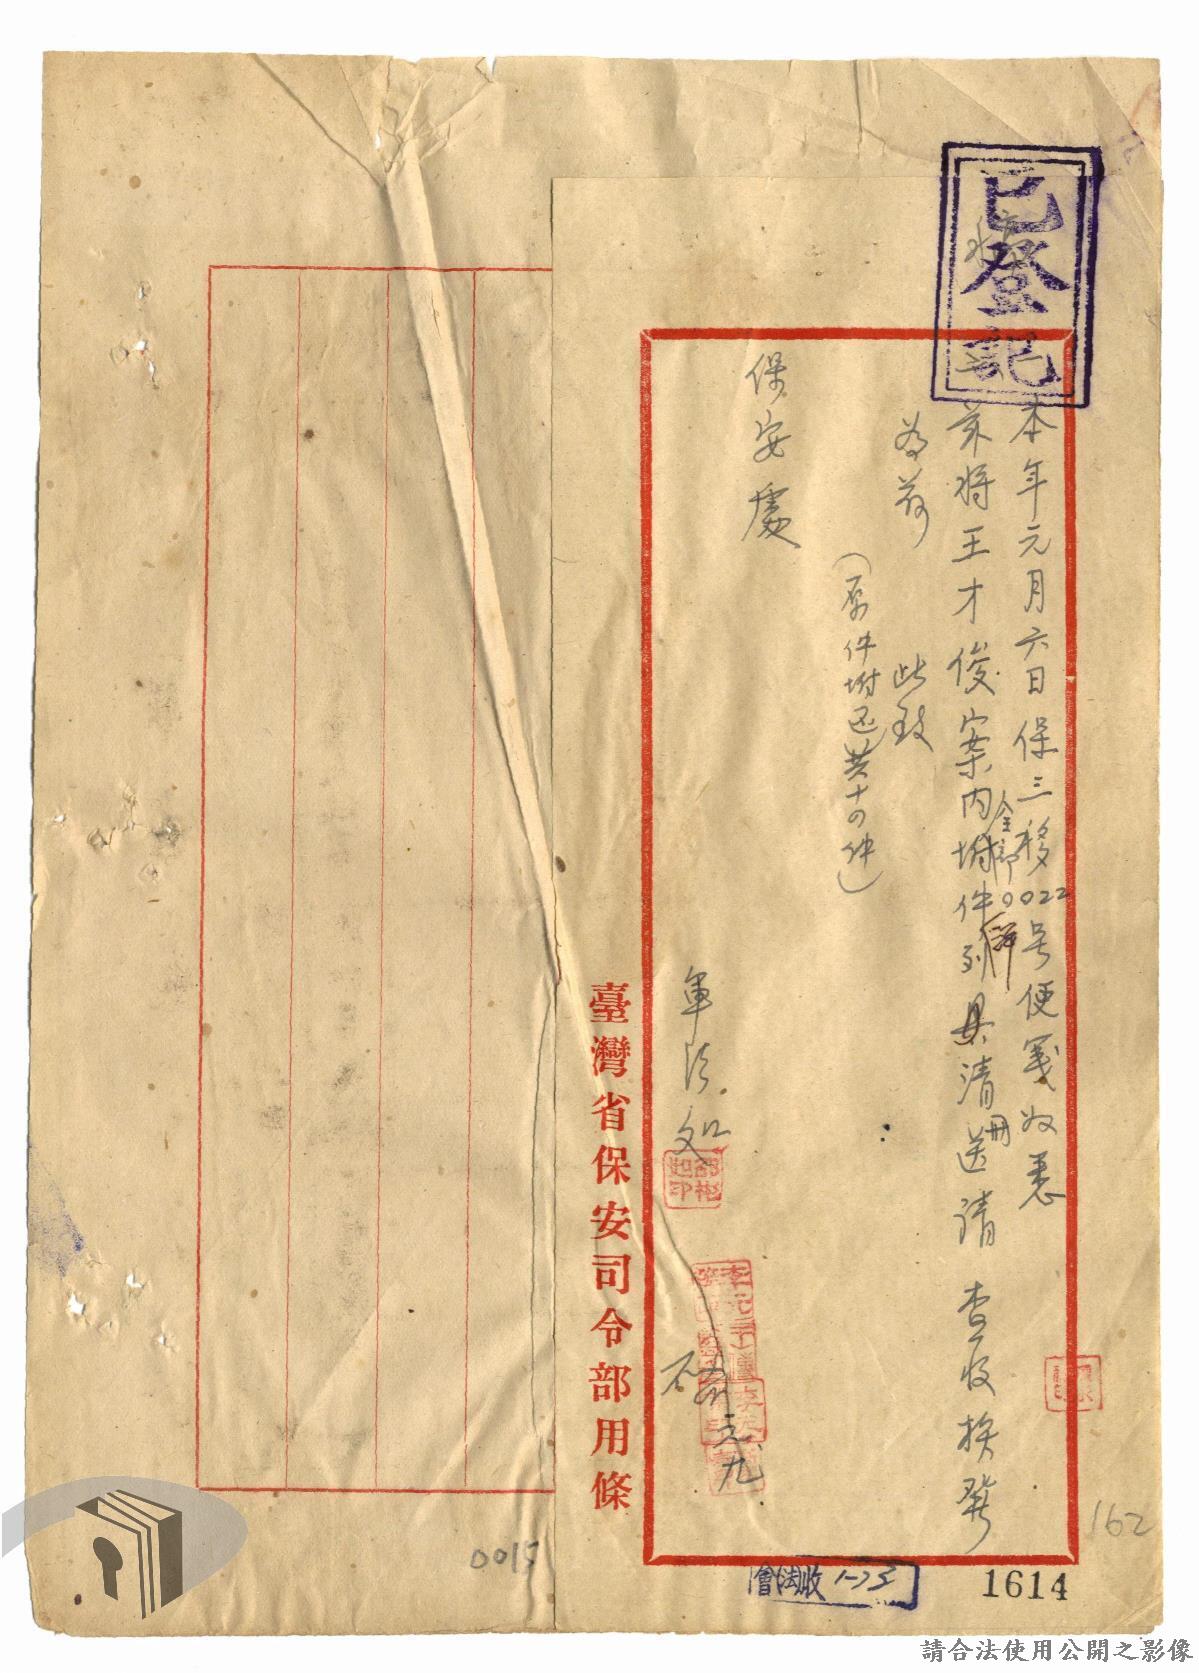 已登記
本年元月六日保三移0022号便箋敬悉
茲將王才俊案内全部附件列具清冊送請 查收掣
為荷
此致
(原件附還共十四件)
保安處
軍法処
元、九
臺灣省保安司令部用條
收法會
1614
162
0015
請合法使用公開之影像